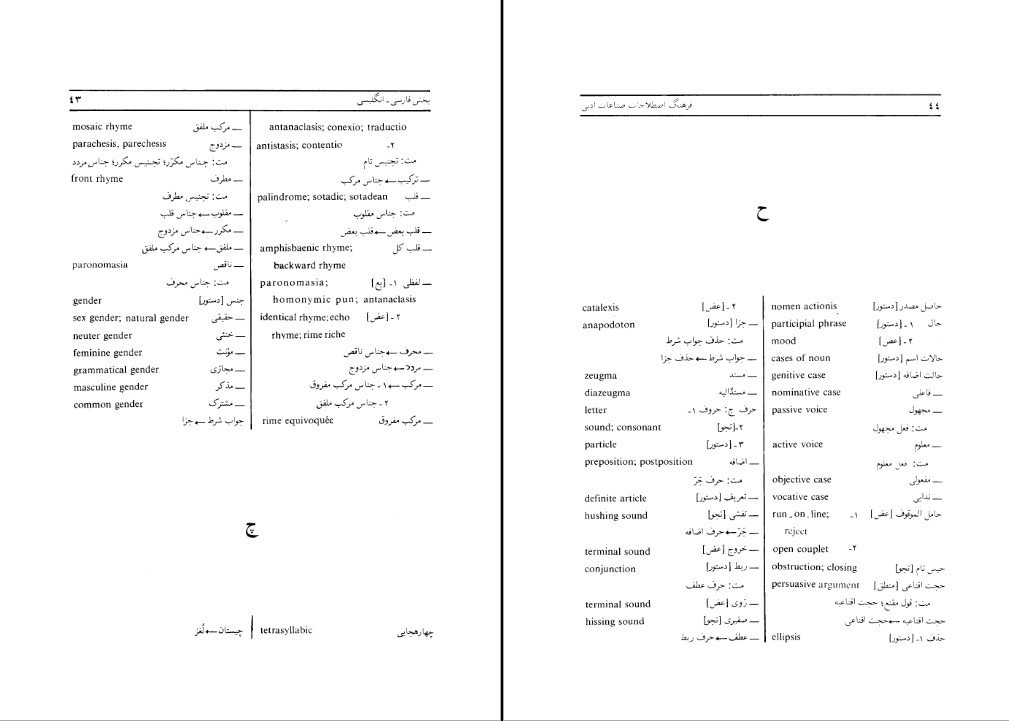 بخش فارسی ـ انگلیسی ٤٣
antanaclasis; conexio; traductio
antistasis; contentio ۲ـ
مت: تجنیس تام
ـــ ترکیب ← جناس مرکب
palindrome; sotadic; sotadean ـــ قلب
مت: جناس مقلوب
ـــ قلب بعض ← قلب بعض
amphisbaenic rhyme; ـــ قلب کل
backward rhyme
paronomasia; ـــ لفظی ۱ـ [بع]
homonymic pun; antanaclasis
identical rhyme; echo ۲ـ [عض]
rhyme; rime riche
ـــ محرف ← جناس ناقص
ـــ مردد ← جناس مزدوج
ـــ مرکب ← ۱ـ جناس مرکب مفروق
۲ـ جناس مرکب ملفق
rime equivoquée ـــ مرکب مفروق
mosaic rhyme ـــ مرکب ملفق
parachesis, parechesis ـــ مزدوج
مت: جناس مکرّر؛ تجنیس مکرر؛ جناس مردد
front rhyme ـــ مطرف
مت: تجنیس مطرف
ـــ مقلوب ← جناس قلب
ـــ مکرر ← جناس مزدوج
ـــ ملفق ← جناس مرکب ملفق
paronomasia ـــ ناقص
مت: جناس محرف
gender جنس [دستور]
sex gender; natural gender ـــ حقیقی
neuter gender ـــ خنثی
feminine gender ـــ مؤنث
grammatical gender ـــ مجازی
masculine gender ـــ مذکر
common gender ـــ مشترک
جواب شرط ← جزا
چ
tetrasyllabic چهارهجایی
چیستان ← لُغَز
٤٤ فرهنگ اصطلاحات صناعات ادبی
ح
nomen actionis حاصل مصدر [دستور]
participial phrase حال ۱ـ [دستور]
mood ۲ـ [عض]
cases of noun حالات اسم [دستور]
genitive case حالت اضافه [دستور]
nominative case ـــ فاعلی
passive voice ـــ مجهول
مت: فعل مجهول
active voice ـــ معلوم
مت: فعل معلوم
objective case ـــ مفعولی
vocative case ـــ ندایی
run_on_line; ۱ـ حامل الموقوف [عض]
reject
open couplet ۲ـ
obstruction; closing حبس تام [تجو]
persuasive argument حجت اقناعی [منطق]
مت: قول مقنع؛ حجت اقناعیه
حجت اقناعیه ← حجت اقناعی
ellipsis حذف ۱ـ [دستور]
catalexis ۲ـ [عض]
anapodoton ـــ جزا [دستور]
مت: حذف جواب شرط
ـــ جواب شرط ← حذف جزا
zeugma ـــ مسند
diazeugma ـــ مسندٌالیه
letter حرف ج: حروف ۱ـ
sound; consonant ۲ـ [تجو]
particle ۳ـ [دستور]
preposition; postposition ـــ اضافه
مت: حرف جَرّ
definite article ـــ تعریف [دستور]
hushing sound ـــ تفشی [تجو]
ـــ جَرّ ← حرف اضافه
terminal sound ـــ خروج [عض]
conjunction ـــ ربط [دستور]
مت: حرف عطف
terminal sound ـــ رَوی [عض]
hissing sound ـــ صفیری [تجو]
ـــ عطف ← حرف ربط